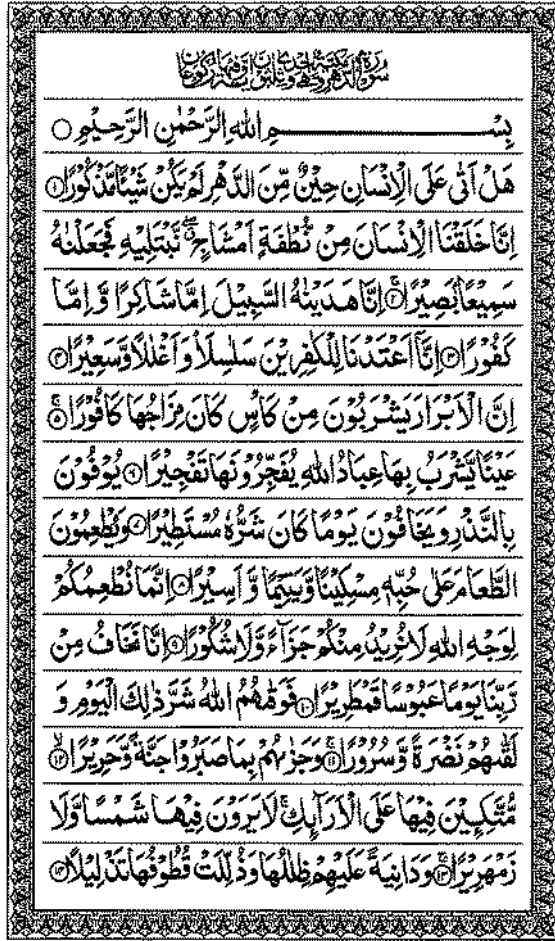 سورة الدهر مكية وهي احدى وثلثون اية وفيها ركوعان
بِسْمِ اللهِ الرَّحْمٰنِ الرَّحِيْمِ ○
هَلْ اَتٰى عَلَى الْاِنْسَانِ حِيْنٌ مِّنَ الدَّهْرِ لَمْ يَكُنْ شَيْئًا مَّذْكُوْرًا ۝۱
اِنَّا خَلَقْنَا الْاِنْسَانَ مِنْ نُّطْفَةٍ اَمْشَاجٍ ۖ نَّبْتَلِيْهِ فَجَعَلْنٰهُ
سَمِيْعًۢا بَصِيْرًا ۝۲ اِنَّا هَدَيْنٰهُ السَّبِيْلَ اِمَّا شَاكِرًا وَّاِمَّا
كَفُوْرًا ۝۳ اِنَّاۤ اَعْتَدْنَا لِلْكٰفِرِيْنَ سَلٰسِلَا۠ وَاَغْلٰلًا وَّسَعِيْرًا ۝۴
اِنَّ الْاَبْرَارَ يَشْرَبُوْنَ مِنْ كَاْسٍ كَانَ مِزَاجُهَا كَافُوْرًا ۝۵
عَيْنًا يَّشْرَبُ بِهَا عِبَادُ اللهِ يُفَجِّرُوْنَهَا تَفْجِيْرًا ۝۶ يُوْفُوْنَ
بِالنَّذْرِ وَيَخَافُوْنَ يَوْمًا كَانَ شَرُّهٗ مُسْتَطِيْرًا ۝۷ وَيُطْعِمُوْنَ
الطَّعَامَ عَلٰى حُبِّهٖ مِسْكِيْنًا وَّيَتِيْمًا وَّاَسِيْرًا ۝۸ اِنَّمَا نُطْعِمُكُمْ
لِوَجْهِ اللهِ لَا نُرِيْدُ مِنْكُمْ جَزَآءً وَّلَا شُكُوْرًا ۝۹ اِنَّا نَخَافُ مِنْ
رَّبِّنَا يَوْمًا عَبُوْسًا قَمْطَرِيْرًا ۝۱۰ فَوَقٰىهُمُ اللهُ شَرَّ ذٰلِكَ الْيَوْمِ وَ
لَقّٰىهُمْ نَضْرَةً وَّسُرُوْرًا ۝۱۱ وَجَزٰىهُمْ بِمَا صَبَرُوْا جَنَّةً وَّحَرِيْرًا ۝۱۲
مُّتَّكِـِٕيْنَ فِيْهَا عَلَى الْاَرَآئِكِ ۚ لَا يَرَوْنَ فِيْهَا شَمْسًا وَّلَا
زَمْهَرِيْرًا ۝۱۳ وَدَانِيَةً عَلَيْهِمْ ظِلٰلُهَا وَذُلِّلَتْ قُطُوْفُهَا تَذْلِيْلًا ۝۱۴